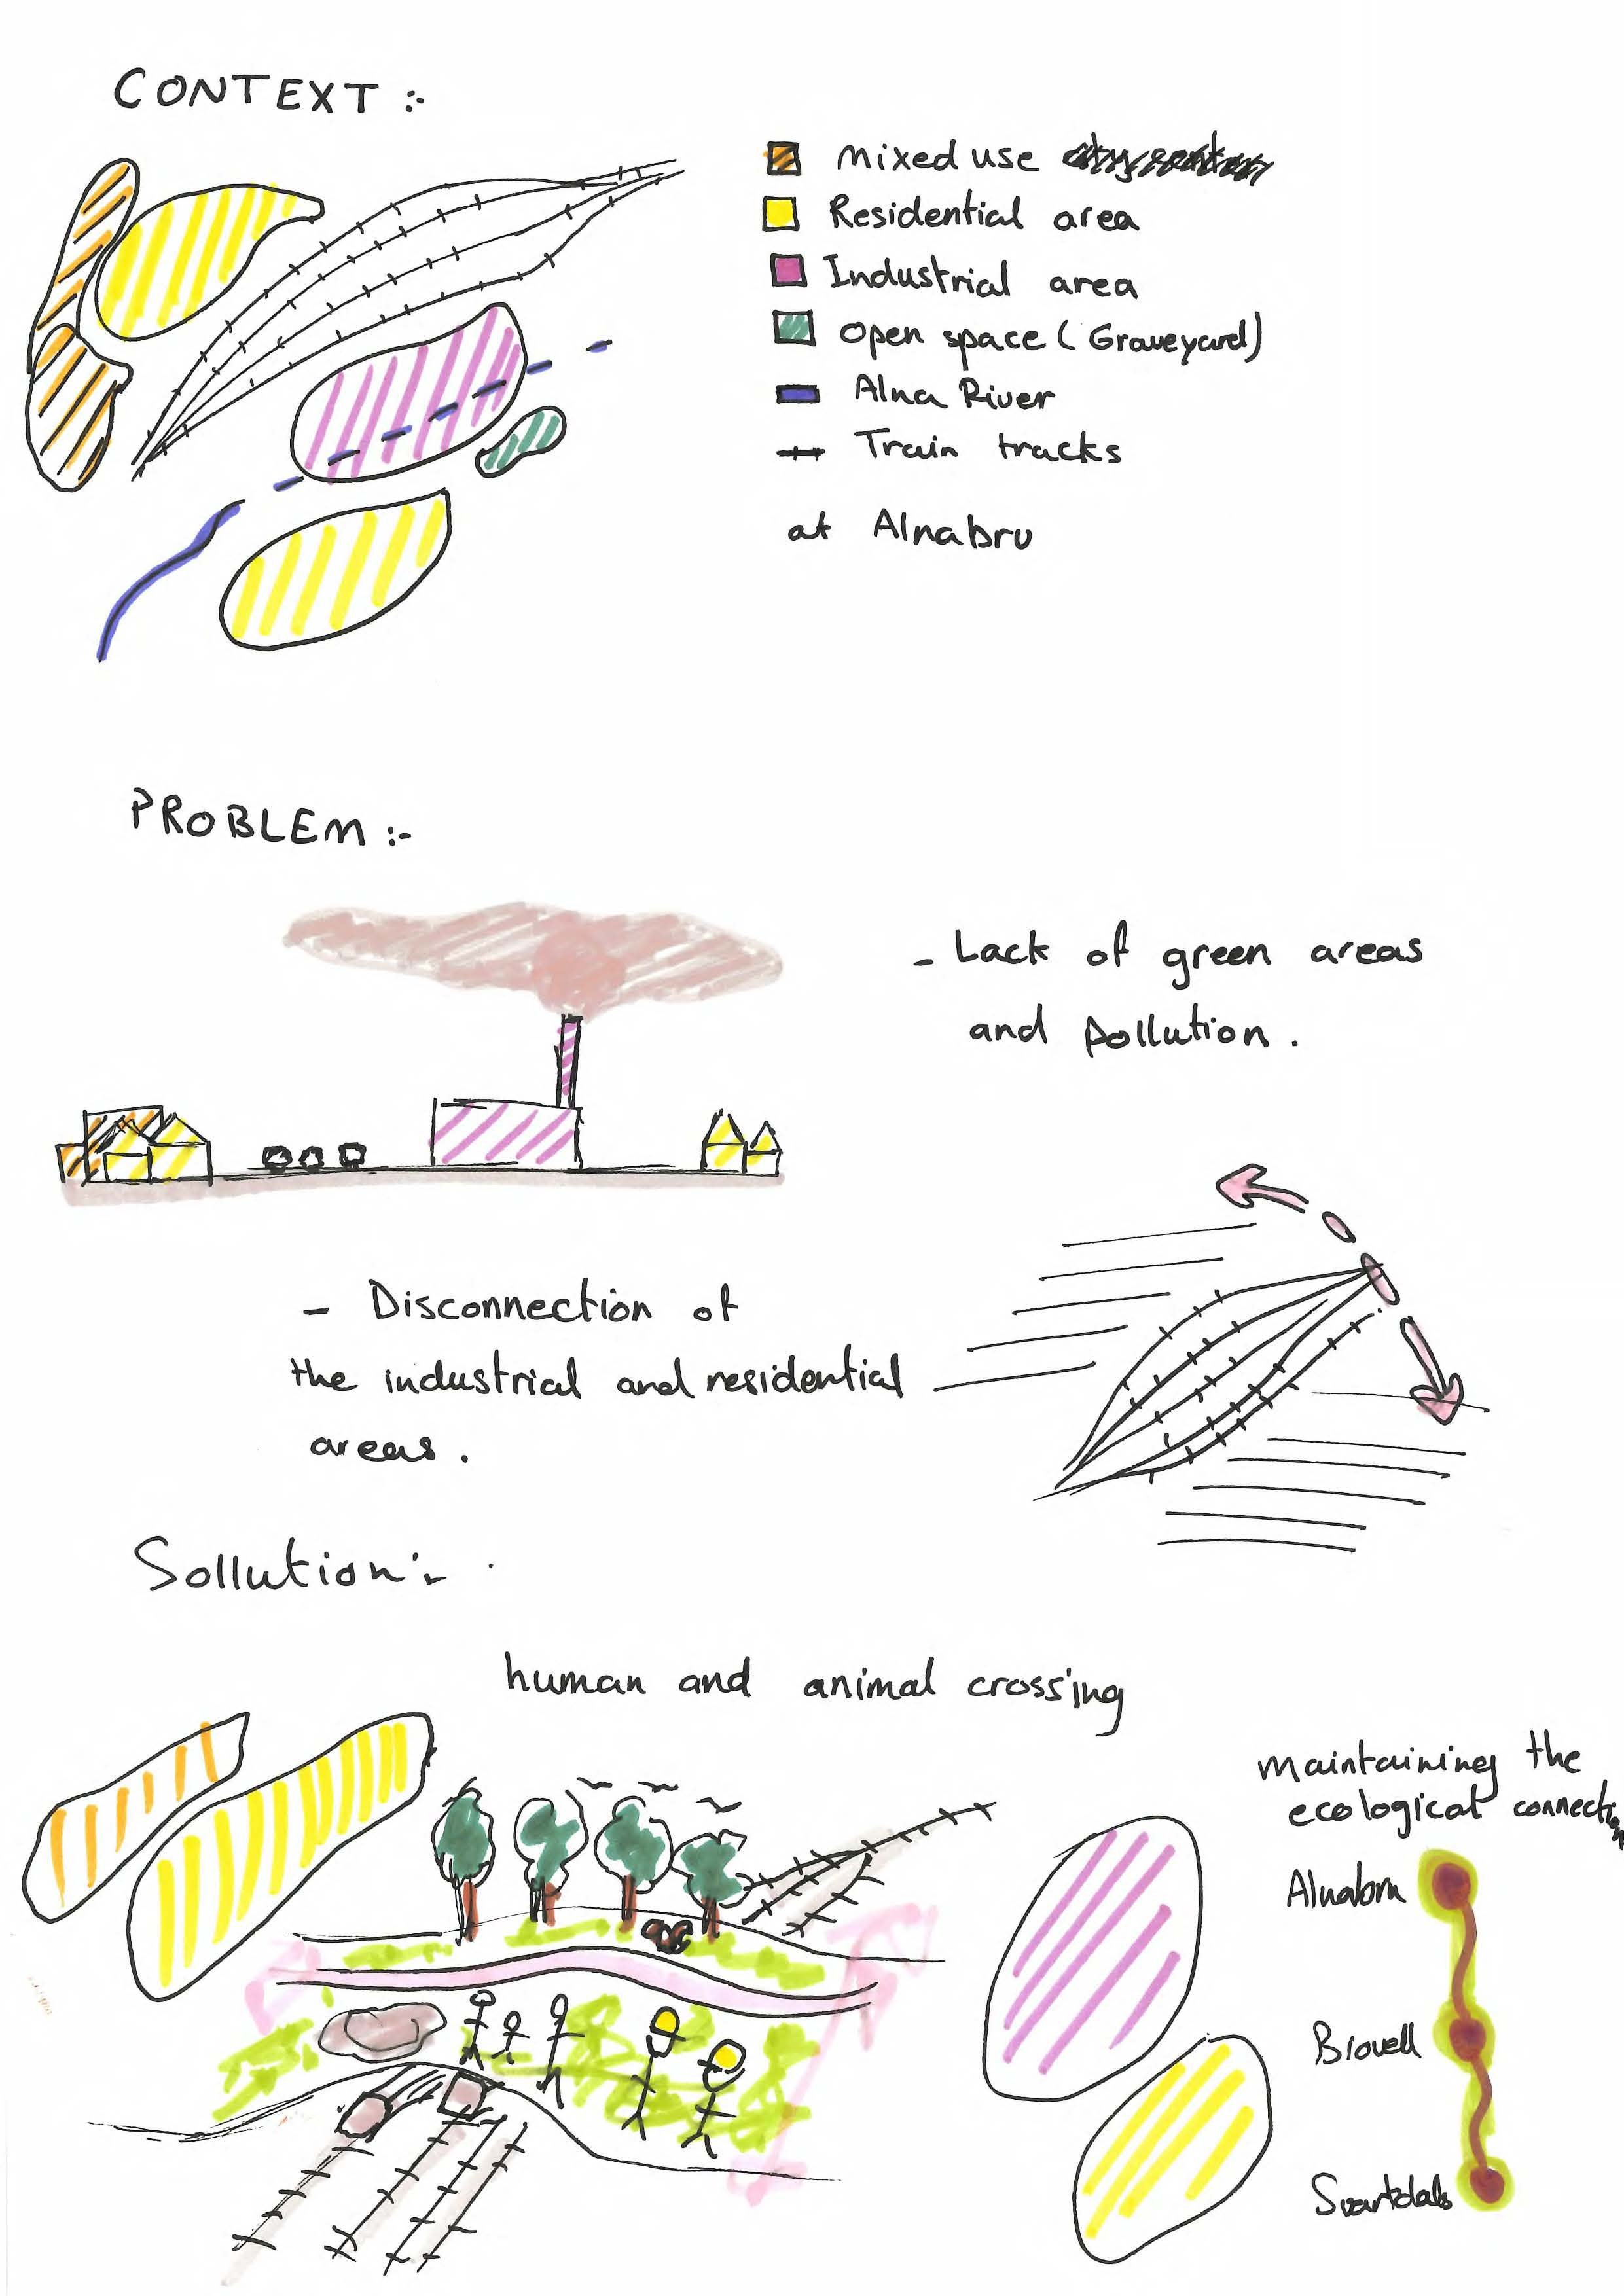 CONTEXT :-
mixed use
Residential area
Industrial area
open space (Graveyard)
Alna River
Train tracks
at Alnabru
PROBLEM :-
- Lack of green areas
and pollution.
- Disconnection of
the industrial and residential
areas.
Sollution :-
human and animal crossing
maintaining the
ecological connection
Alnabru
Brouell
Svartdals